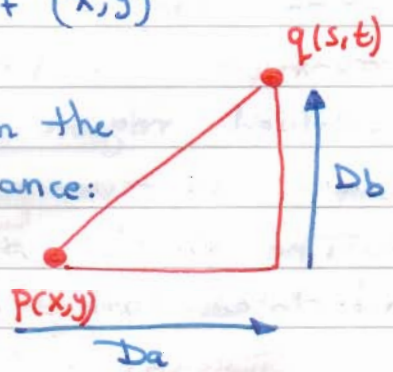 (x,y)
q(s,t)
n the
ance:
Db
p(x,y)
Da